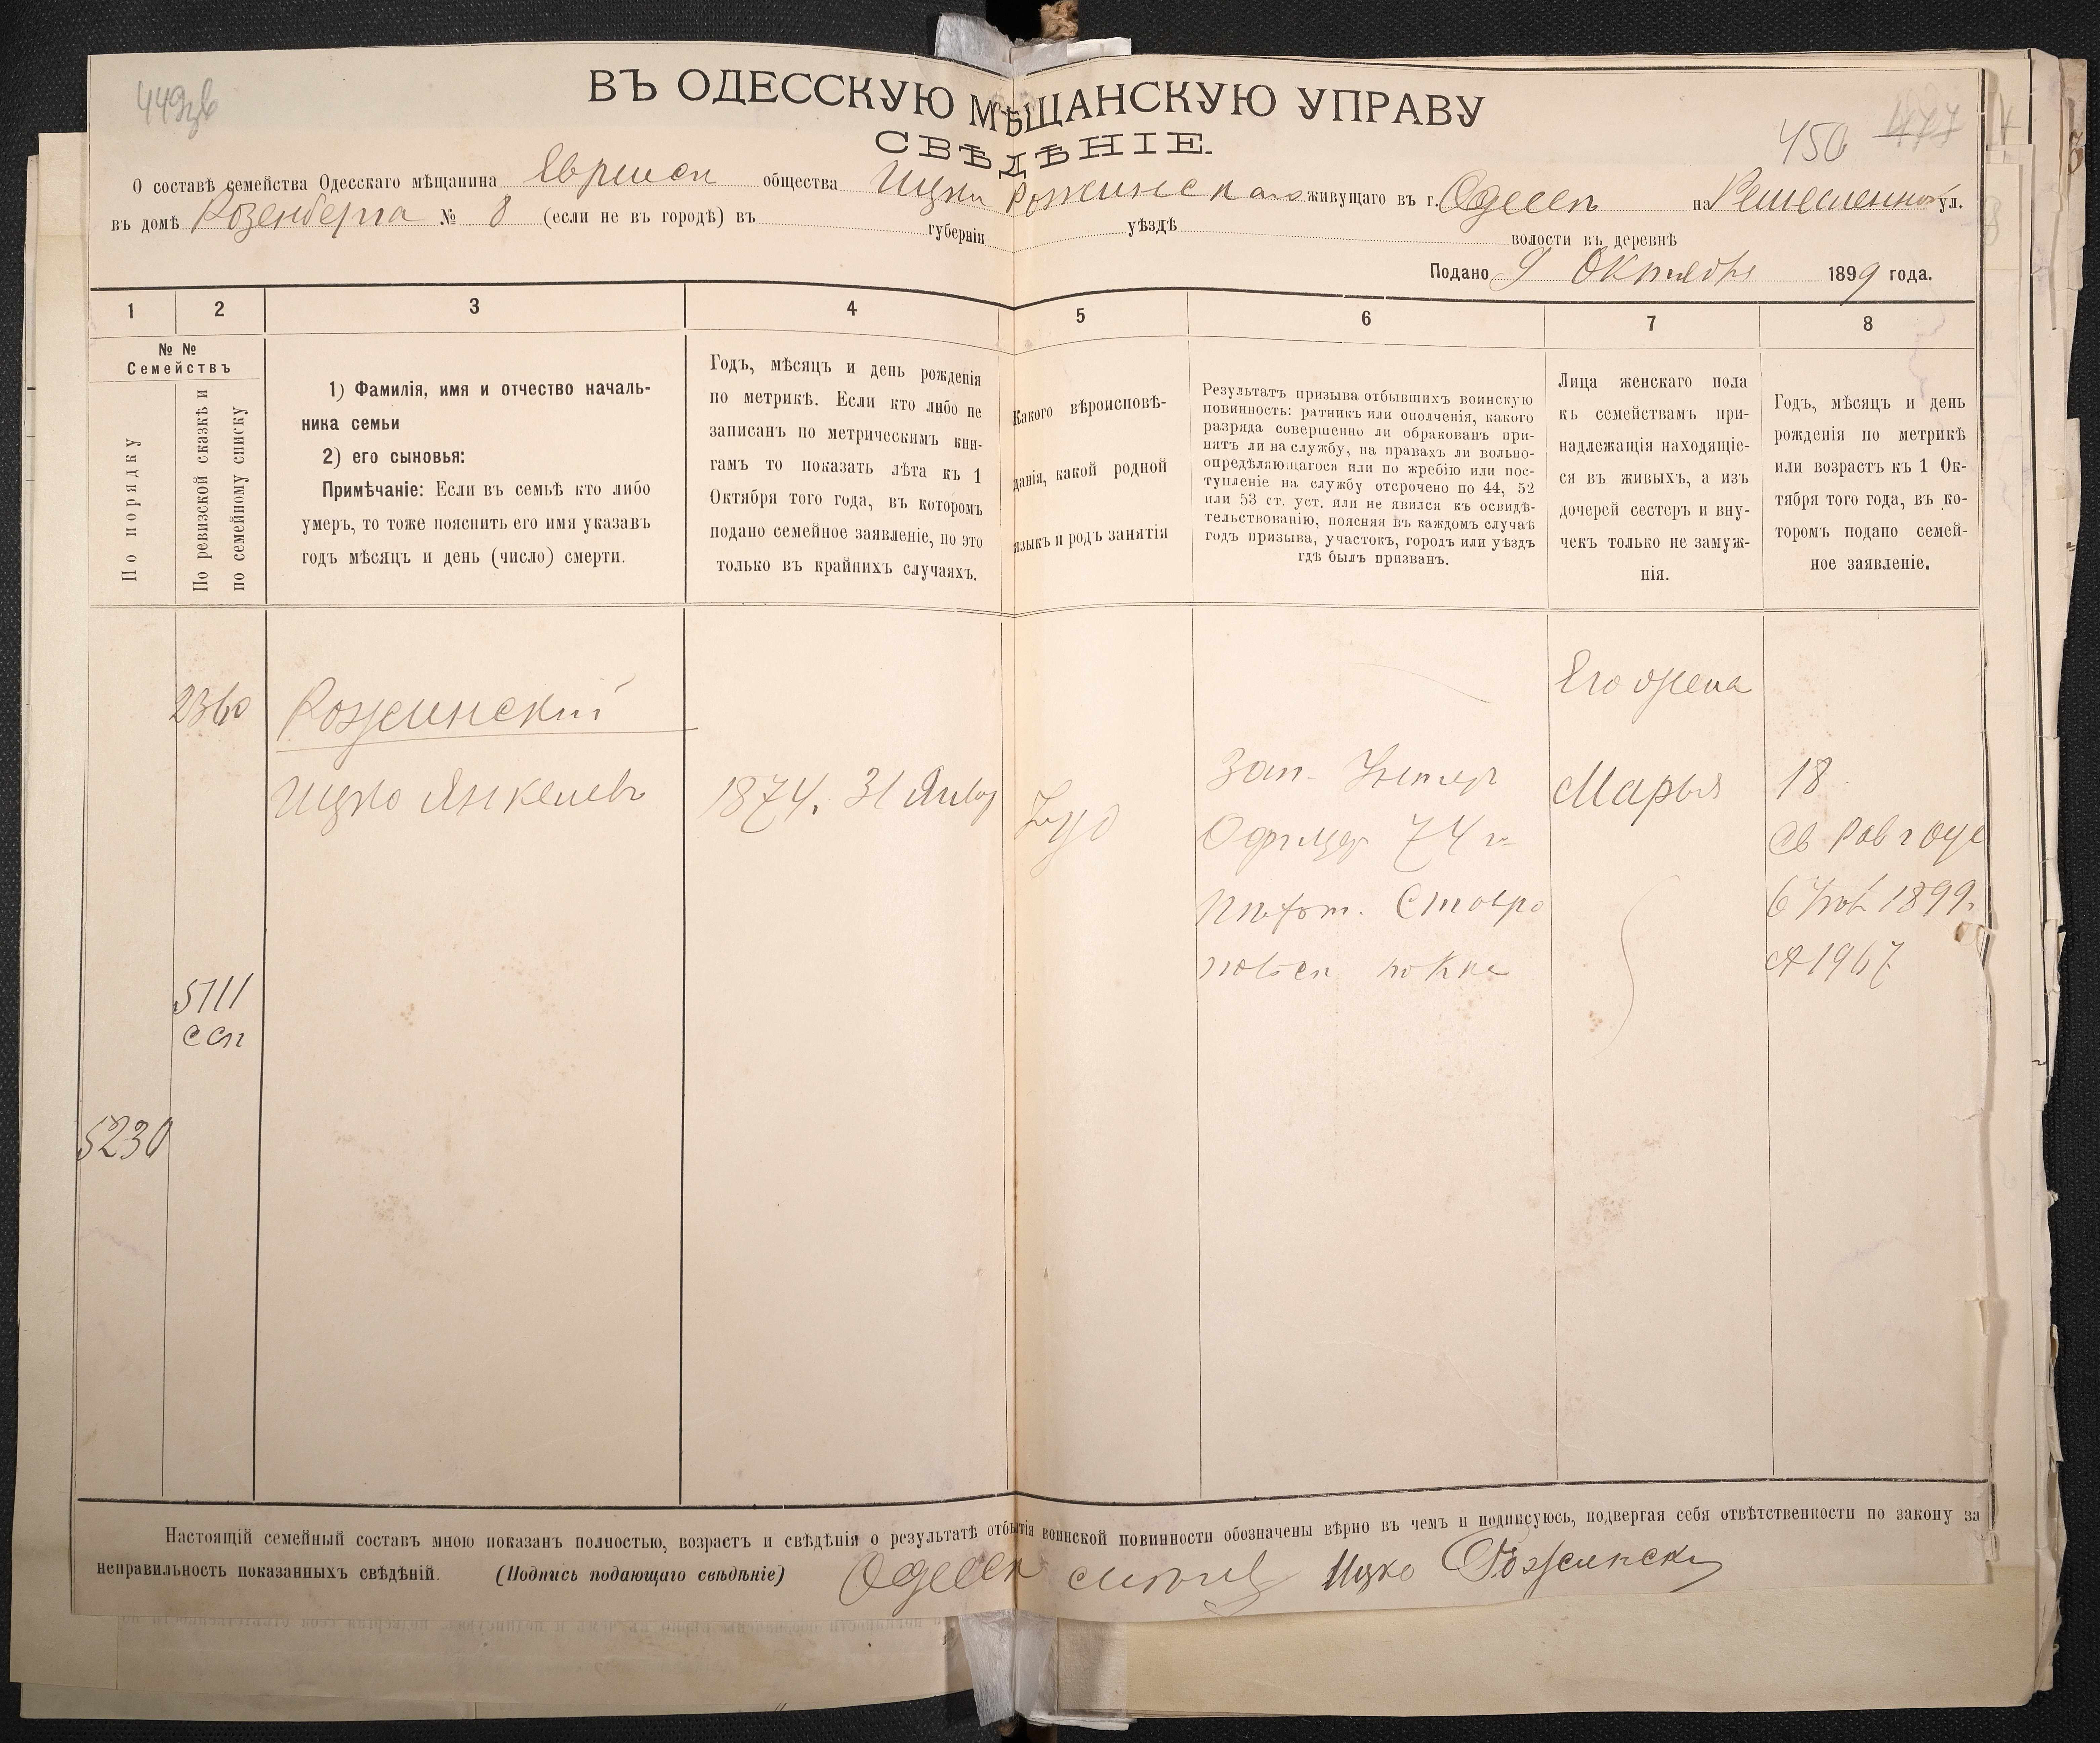 449 об
ВЪ ОДЕССКУЮ МѢЩАНСКУЮ УПРАВУ
СВѢДѢНІЕ.
450 477
О составѣ семейства Одесскаго мѣщанина Евреиск общества Ицки Рожинскаго живущаго въ г. Одессѣ на Ремесленной ул.
въ домѣ Розенберга № 8 (если не въ городѣ) въ губерніи уѣздѣ волости въ деревнѣ
Подано 9 Октября 1899 года.
1 2 3 4 5 6 7 8
№ №
Семействъ
По порядку
По ревизской сказкѣ и
по семейному списку
1) Фамилія, имя и отчество началь-
ника семьи
2) его сыновья:
Примѣчаніе: Если въ семьѣ кто либо
умеръ, то тоже пояснить его имя указавъ
годъ мѣсяцъ и день (число) смерти.
Годъ, мѣсяцъ и день рожденія
по метрикѣ. Если кто либо не
записанъ по метрическимъ кни-
гамъ то показать лѣта къ 1
Октября того года, въ которомъ
подано семейное заявленіе, но это
только въ крайнихъ случаяхъ.
Какого вѣроисповѣ-
данія, какой родной
языкъ и родъ занятія
Результатъ призыва отбывшихъ воинскую
повинность: ратникъ или ополченія, какого
разряда совершенно ли обракованъ при-
нятъ ли на службу, на правахъ ли вольно-
опредѣляющагося или по жребію или пос-
тупленіе на службу отсрочено по 44, 52
или 53 ст. уст. или не явился къ освидѣ-
тельствованію, поясняя въ каждомъ случаѣ
годъ призыва, участокъ, городъ или уѣздъ
гдѣ былъ призванъ.
Лица женскаго пола
къ семействамъ при-
надлежащія находящіе-
ся въ живыхъ, а изъ
дочерей сестеръ и вну-
чекъ только не замуж-
нія.
Годъ, мѣсяцъ и день
рожденія по метрикѣ
или возрастъ къ 1 Ок-
тября того года, въ ко-
торомъ подано семей-
ное заявленіе.
2360 Рожинскій
Его жена
Ицко Янкелевъ 1874. 31 Январ Іуд
Зап. Унтер
Офицер 74 г.
Пѣхот. Ставро
польск полка
Марья
18
Св Рав г Одес
1899 г.
1967
5111
ссп
5230
Настоящій семейный составъ мною показанъ полностью, возрастъ и свѣдѣнія о результатѣ отбытія воинской повинности обозначены вѣрно въ чемъ и подписуюсь, подвергая себя отвѣтственности по закону за
неправильность показанныхъ свѣдѣній. (Подпись подающаго свѣдѣніе) Ицко Рожинский